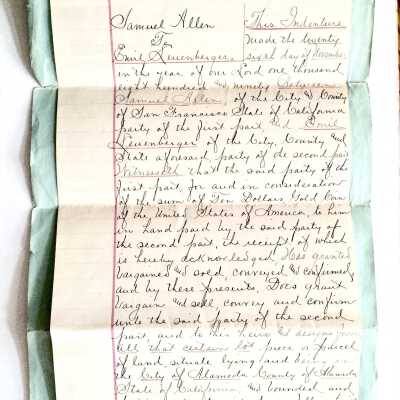 Samuel Allen
To
Emil Leuenberger.
This Indenture
made the twenty
sixth day of November
in the year of our Lord one thousand
eight hundred and ninety Between
Samuel Allen of the City & County
of San Francisco State of California
party of the first part, and Emil
Leuenberger of the City, County and
State aforesaid party of the second part
Witnesseth that the said party of the
first part, for and in consideration
of the sum of Ten Dollars Gold Coin
of the United States of America, to him
in hand paid by the said party of
the second part, the receipt of which
is hereby acknowledged, Has granted
bargained and sold, conveyed and confirmed
and by these presents, Does grant
bargain and sell convey and confirm
unto the said party of the second
part, and to his heirs and assigns forever
all that certain lot piece or parcel
of land situate lying and being in
the City of Alameda County of Alameda
State of California, and bounded and